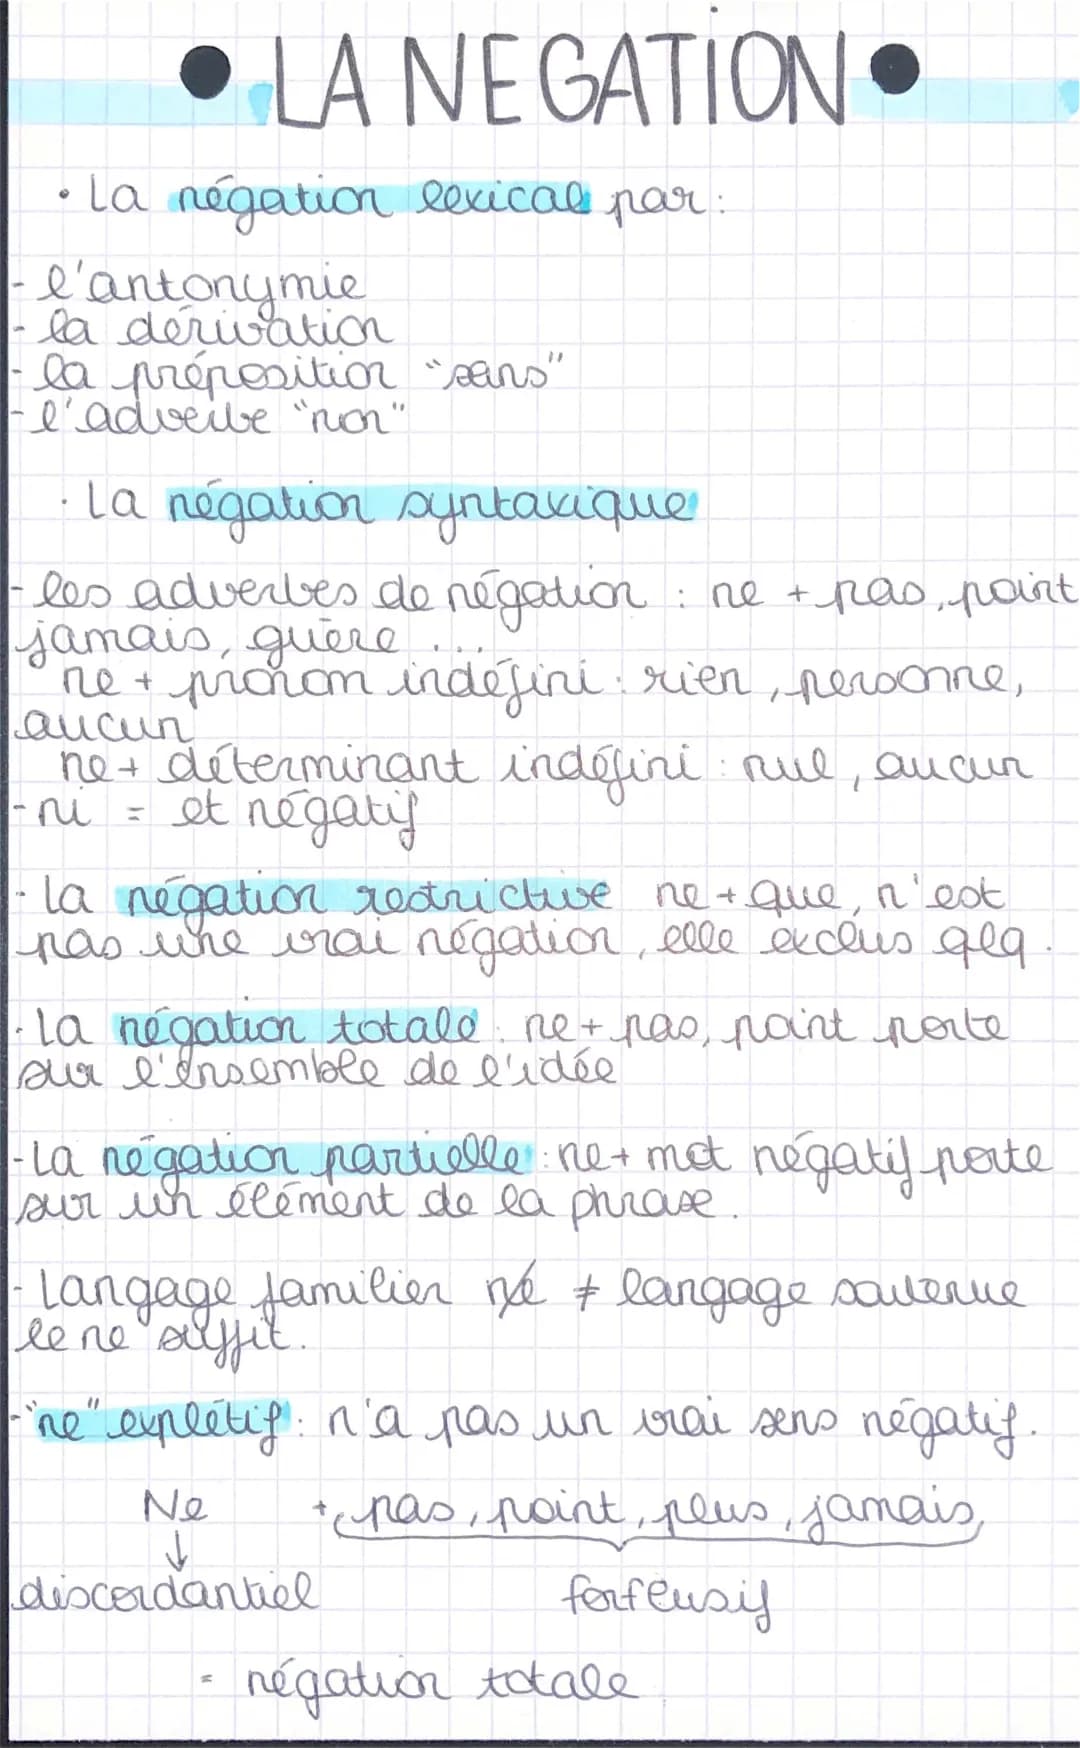 • LA NEGATION •
• La négation lexical par :
- l'antonymie
- la dérivation
- la préposition "sans"
- l'adverbe "non"
· La négation syntaxique
- les adverbes de négation : ne + pas, point
jamais, guère ...
ne + pronom indéfini : rien, personne,
aucun
ne + déterminant indéfini : nul, aucun
- ni = et négatif
- La négation restrictive ne + que, n'est
pas une vrai négation, elle exclus qlq.
- La négation totale : ne + pas, point porte
sur l'ensemble de l'idée
- La négation partielle : ne + mot négatif porte
sur un élément de la phrase.
- Langage familier ne ≠ langage soutenue
le ne suffit.
- "ne" explétif : n'a pas un vrai sens négatif.
Ne + pas, point, plus, jamais,
↓
discordantiel forfeusif
= négation totale